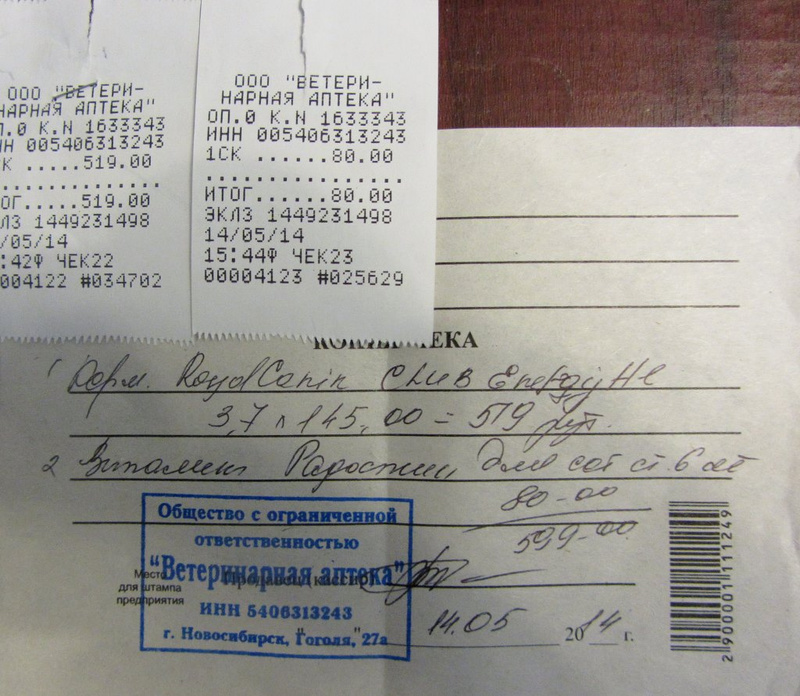 ООО "ВЕТЕРИ-
НАРНАЯ АПТЕКА"
П.0 К.N 1633343
НН 005406313243
К .....519.00
ОГ.....519.00
ЛЗ 1449231498
/05/14
:42Ф ЧЕК22
004122 #034702
ООО "ВЕТЕРИ-
НАРНАЯ АПТЕКА"
ОП.0 К.N 1633343
ИНН 005406313243
1СК ......80.00
ИТОГ......80.00
ЭКЛЗ 1449231498
14/05/14
15:44Ф ЧЕК23
00004123 #025629
1 Корм. Royal Canin CLUB Energy HE
3,7 л 145,00 = 519 руб.
2 Витамины Радостин для соб ст. 6 лет
80-00
599-00
Общество с ограниченной
ответственностью
"Ветеринарная аптека"
ИНН 5406313243
г. Новосибирск, Гоголя, 27а
Место
для штампа
предприятия
Продавец (кассир)
14.05 2014 г.
2 900001 111249